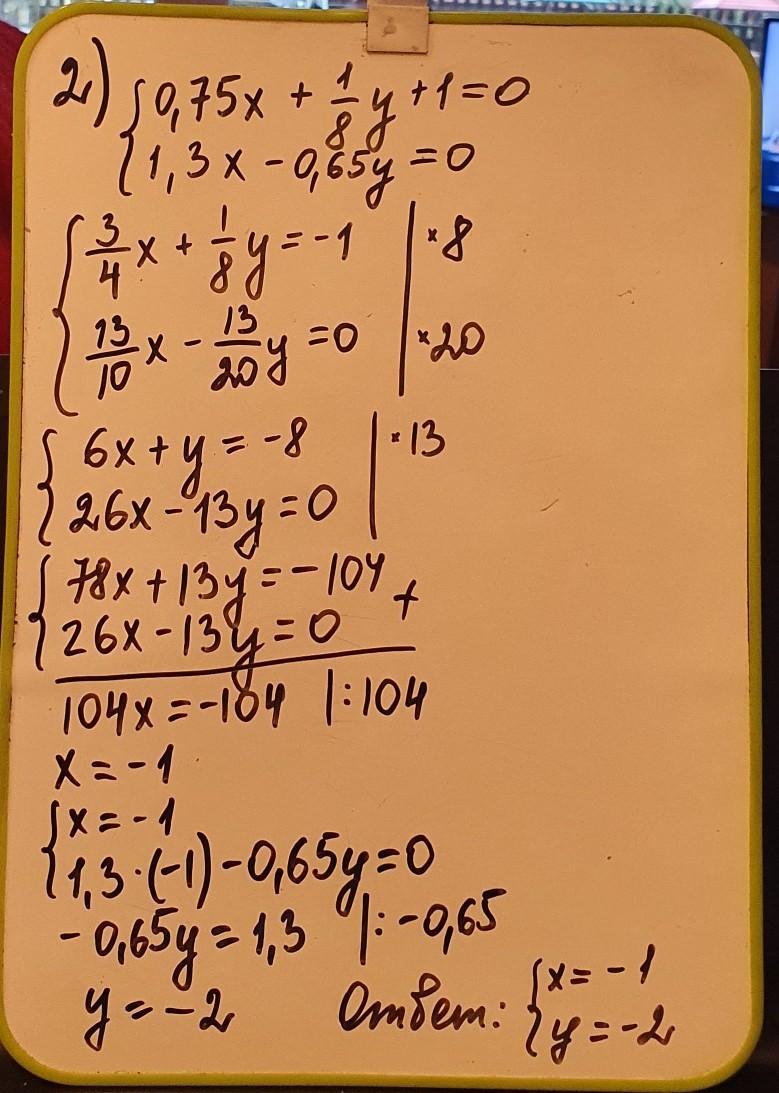 2) { 0,75x + 1/8 y + 1 = 0
{ 1,3x - 0,65y = 0
{ 3/4 x + 1/8 y = -1 | × 8
{ 13/10 x - 13/20 y = 0 | × 20
{ 6x + y = -8 | × 13
{ 26x - 13y = 0
{ 78x + 13y = -104 +
{ 26x - 13y = 0
104x = -104 |: 104
x = -1
{ x = -1
{ 1,3·(-1) - 0,65y = 0
-0,65y = 1,3 |: -0,65
y = -2 Ответ: { x = -1
{ y = -2